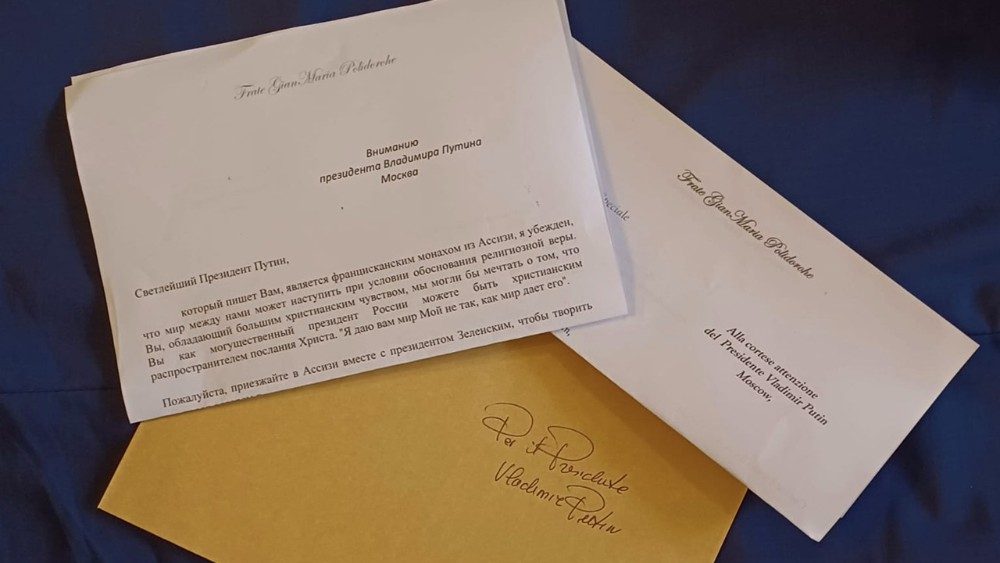 Frate GianMaria Polidorohe
Вниманию
президента Владимира Путина
Москва
Светлейший Президент Путин,
который пишет Вам, является францисканским монахом из Ассизи, я убежден,
что мир между нами может наступить при условии обоснования религиозной веры.
Вы, обладающий большим христианским чувством, мы могли бы мечтать о том, что
Вы как могущественный президент России можете быть христианским
распространителем послания Христа. "Я даю вам мир Мой не так, как мир дает его".
Пожалуйста, приезжайте в Ассизи вместе с президентом Зеленским, чтобы творить
Frate GianMaria Polidorohe
Alla cortese attenzione
del Presidente Vladimir Putin
Moscow,
Per il Presidente
Vladimir Putin